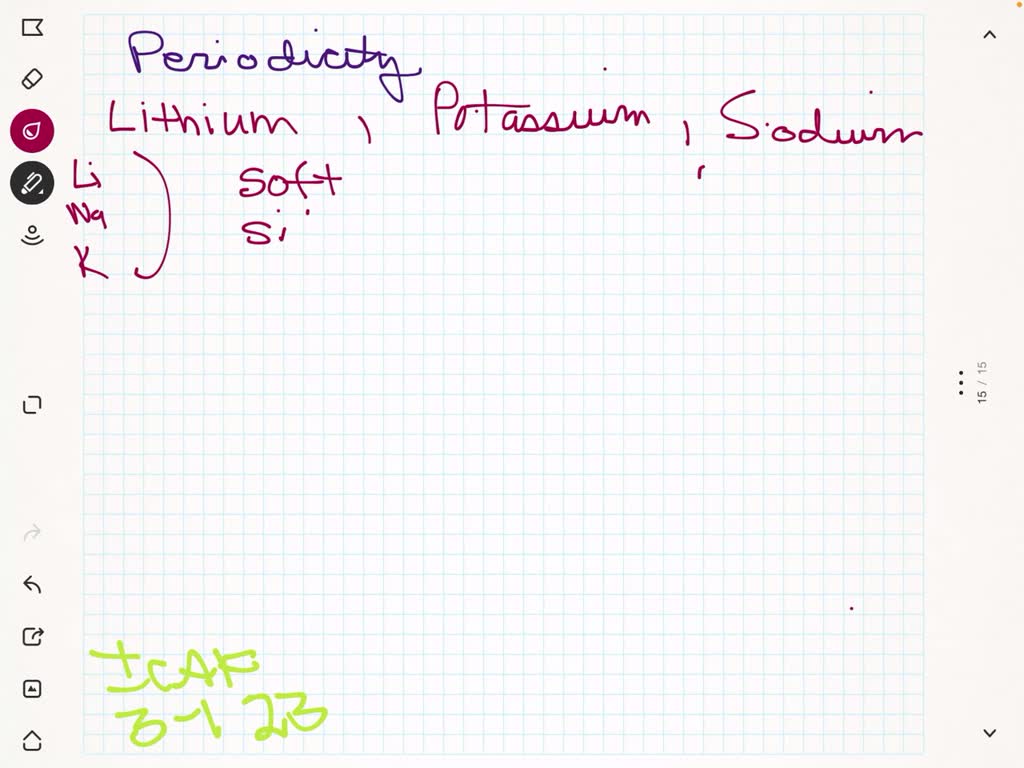 Periodicity
Lithium, Potassium, Sodium
Li
Na
K
Soft
Si
ICAK
3-1 23
15 / 15